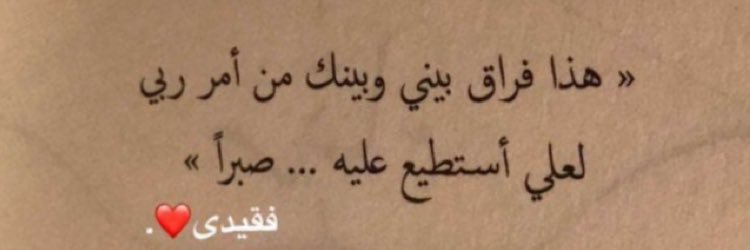 « هذا فراق بيني وبينك من أمر ربي
لعلي أستطيع عليه ... صبراً »
فقيدى❤️.